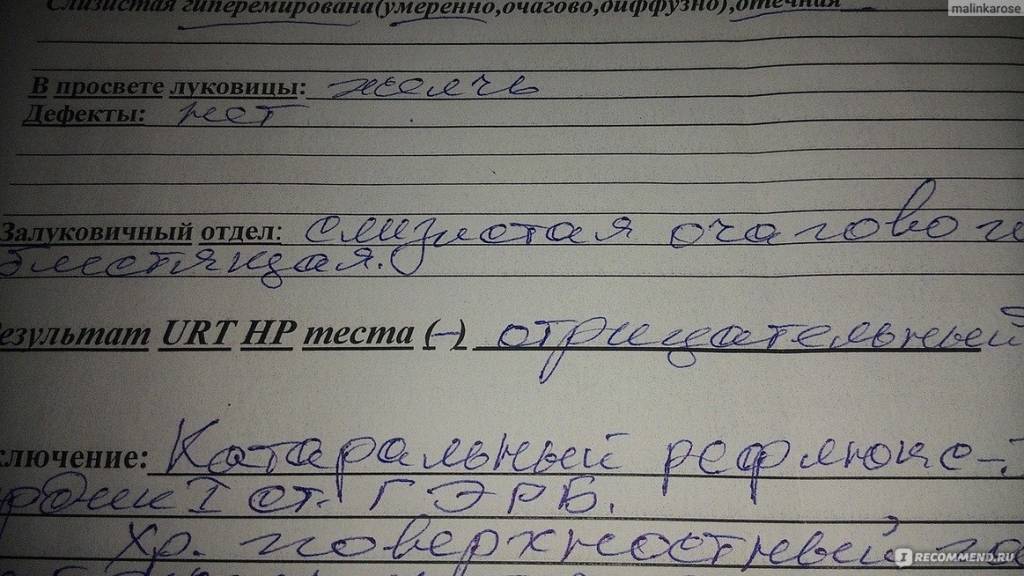 malinkarose
Слизистая гиперемирована(умеренно,очагово,диффузно),отечная
В просвете луковицы: желчь
Дефекты: нет
Залуковичный отдел: слизистая очагово г
блестящая.
езультат URT HP теста (-) отрицательный
ключение: Катаральный рефлюкс-
I ст. ГЭРБ.
Хр. поверхностный га
IRECOMMEND.RU